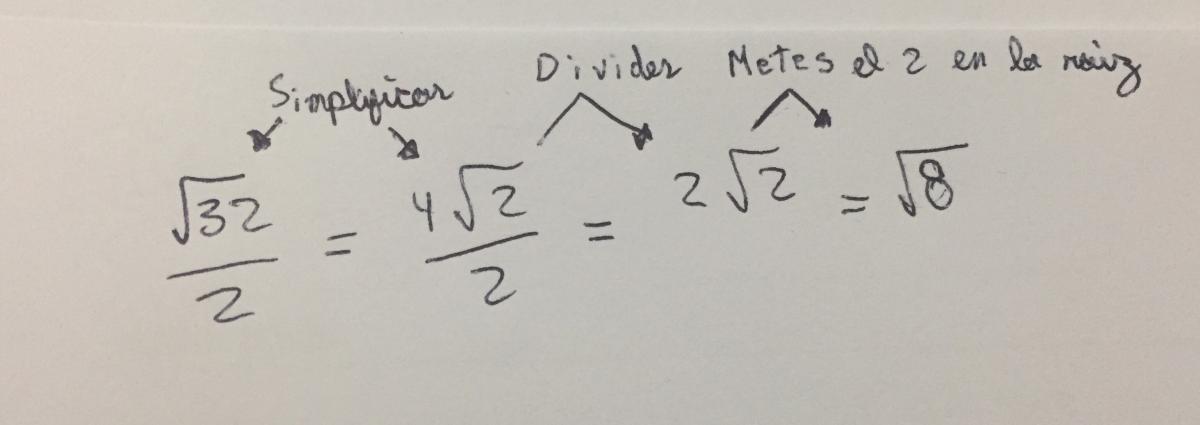 Simplificar Divides Metes el 2 en la raiz
√32/2 = 4√2/2 = 2√2 = √8